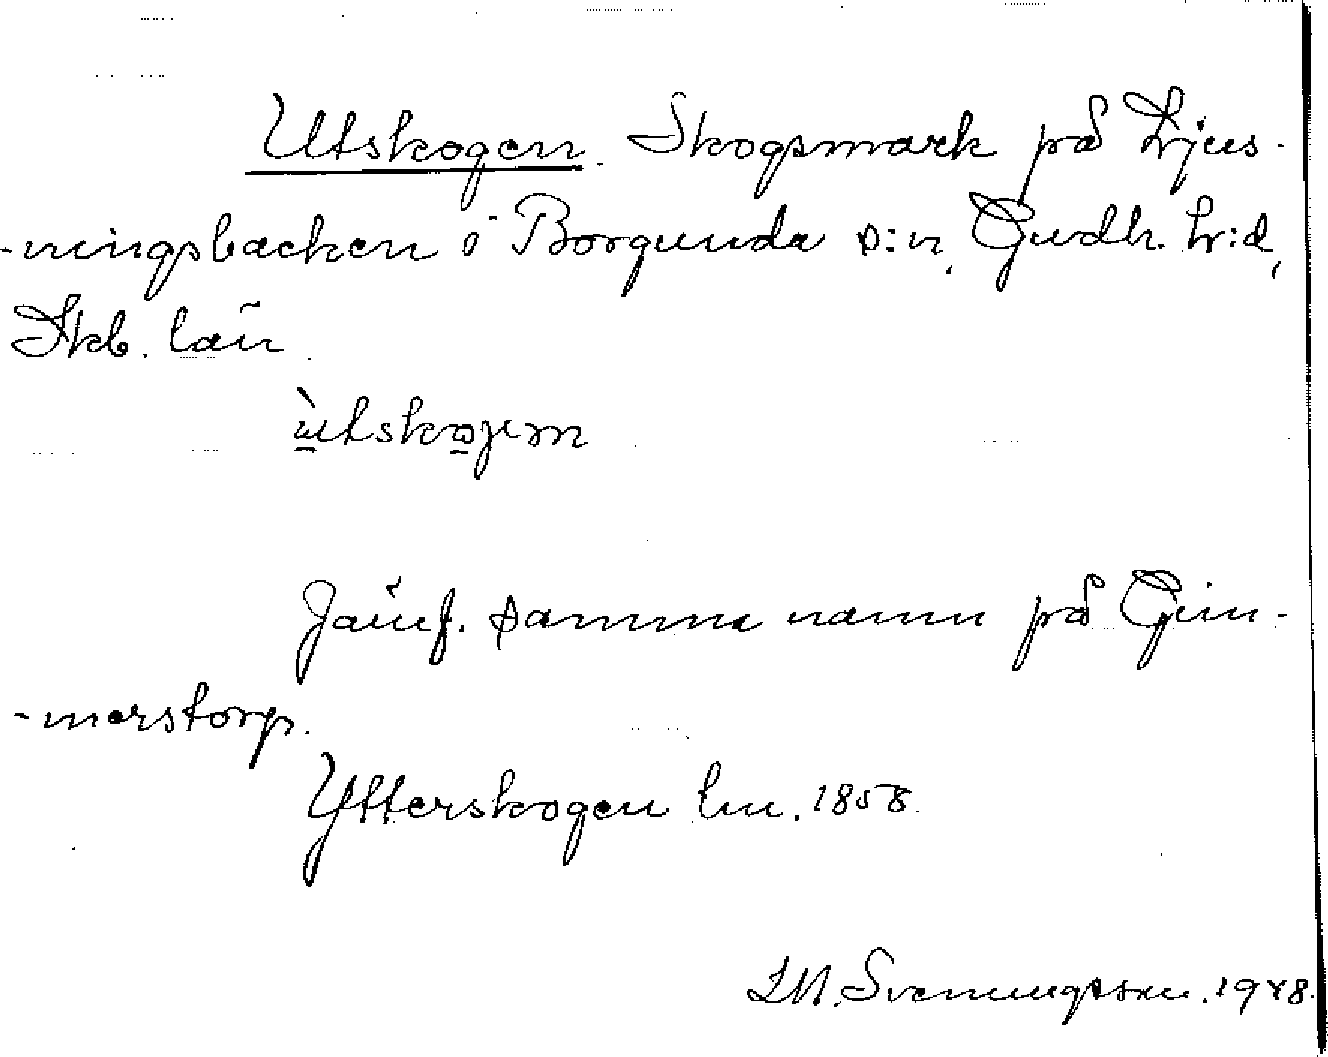 Utskogen. Skogsmark på Ljus-
-ningsbacken i Borgunda s:n, Gudh. hr:d,
Skb. län.
ùtskogem
Jämf. samma namn på Gim-
-marstorp.
Ytterskogen lm. 1858.
L.M. Svenningsson. 1948.